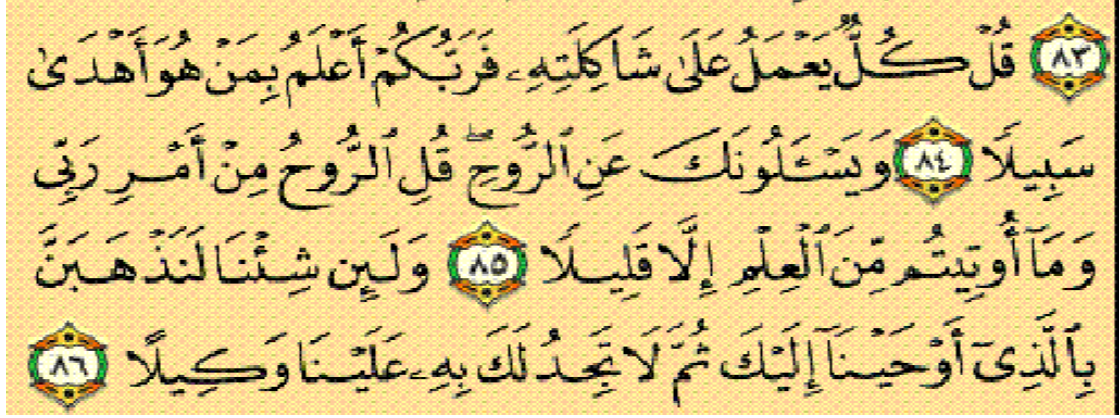 ٨٣ قُلْ كُلٌّ يَعْمَلُ عَلَىٰ شَاكِلَتِهِۦ فَرَبُّكُمْ أَعْلَمُ بِمَنْ هُوَ أَهْدَىٰ
سَبِيلًا ٨٤ وَيَسْـَٔلُونَكَ عَنِ ٱلرُّوحِ ۖ قُلِ ٱلرُّوحُ مِنْ أَمْرِ رَبِّى
وَمَآ أُوتِيتُم مِّنَ ٱلْعِلْمِ إِلَّا قَلِيلًا ٨٥ وَلَئِن شِئْنَا لَنَذْهَبَنَّ
بِٱلَّذِىٓ أَوْحَيْنَآ إِلَيْكَ ثُمَّ لَا تَجِدُ لَكَ بِهِۦ عَلَيْنَا وَكِيلًا ٨٦